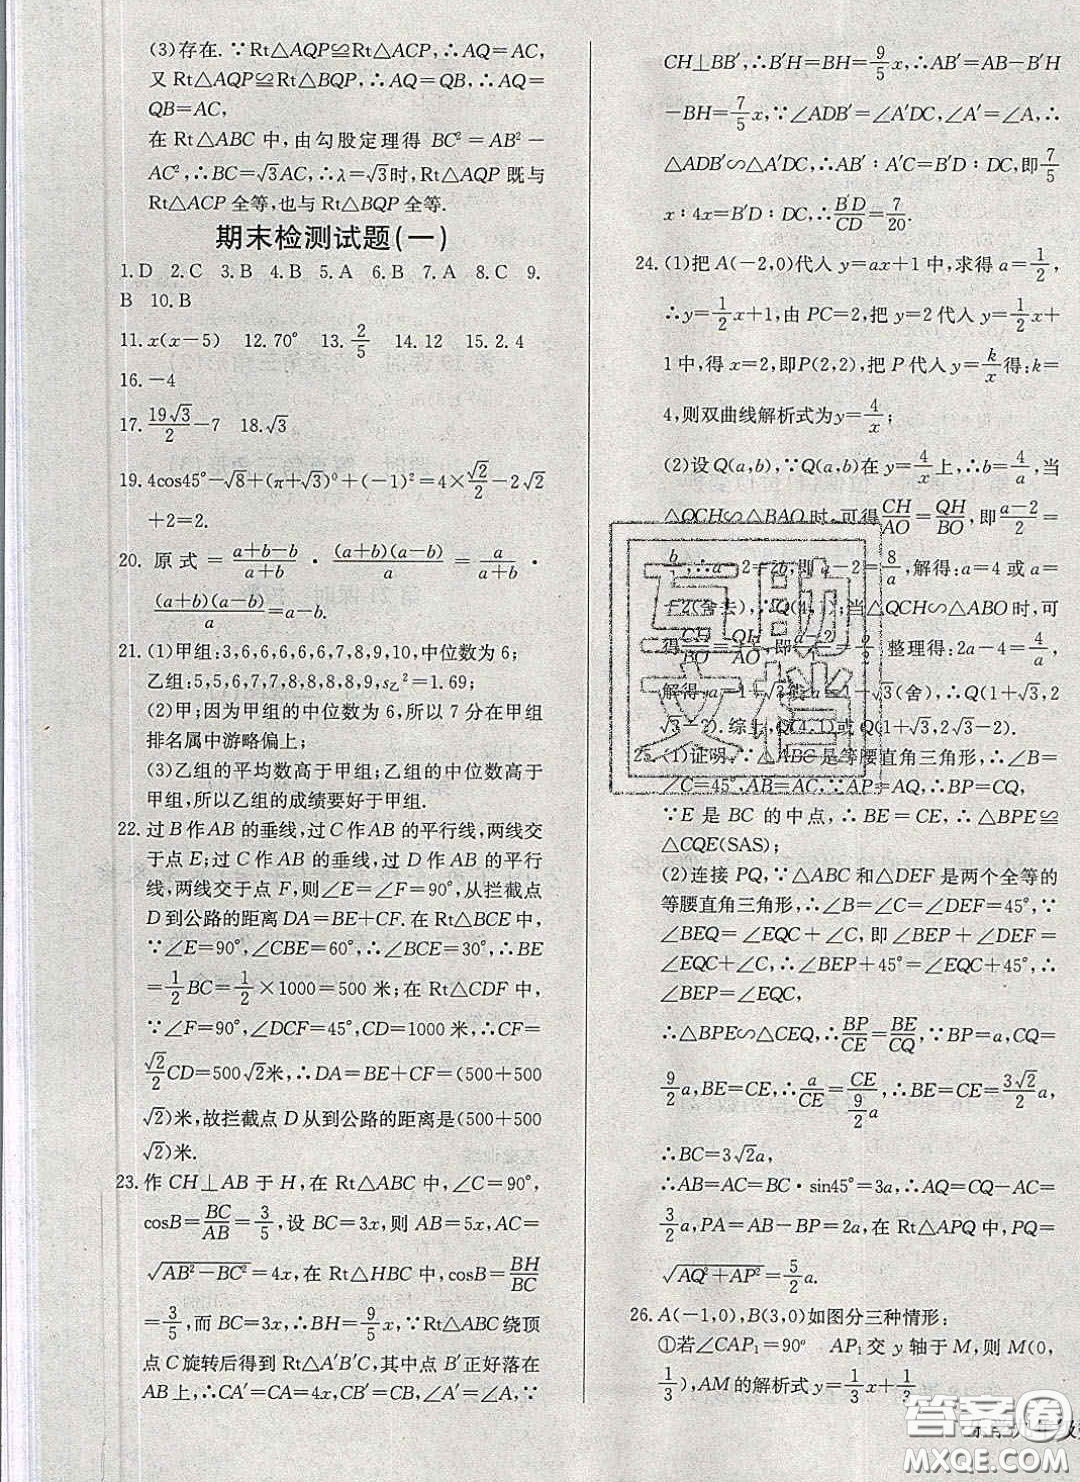 (3)存在.∵Rt△AQP≌Rt△ACP,∴AQ=AC,
又 Rt△AQP≌Rt△BQP,∴AQ=QB,∴AQ=
QB=AC,
在 Rt△ABC 中,由勾股定理得 BC²=AB²-
AC²,∴BC=√3AC,∴λ=√3时,Rt△AQP 既与
Rt△ACP 全等,也与 Rt△BQP 全等.
期末检测试题(一)
1.D 2.C 3.B 4.B 5.A 6.B 7.A 8.C 9.
B 10.B
11.x(x-5) 12.70° 13.2/5 14.12 15.2.4
16.-4
17.19√3/2-7 18.√3
19.4cos45°-√8+(π+√3)⁰+(-1)²=4×√2/2-2√2
+2=2.
20. 原式=(a+b-b)/(a+b)·(a+b)(a-b)/a=a/(a+b)·
(a+b)(a-b)/a=a-b.
21.(1)甲组:3,6,6,6,6,6,7,8,9,10,中位数为6;
乙组:5,5,6,7,7,8,8,8,8,9,s乙²=1.69;
(2)甲;因为甲组的中位数为6,所以7分在甲组
排名属中游略偏上;
(3)乙组的平均数高于甲组;乙组的中位数高于
甲组,所以乙组的成绩要好于甲组.
22.过B作AB的垂线,过C作AB的平行线,两线交
于点E;过C作AB的垂线,过D作AB的平行
线,两线交于点F,则∠E=∠F=90°,从拦截点
D到公路的距离DA=BE+CF.在Rt△BCE中,
∵∠E=90°,∠CBE=60°,∴∠BCE=30°,∴BE
=1/2BC=1/2×1000=500米;在Rt△CDF中,
∵∠F=90°,∠DCF=45°,CD=1000米,∴CF=
√2/2CD=500√2米,∴DA=BE+CF=(500+500
√2)米,故拦截点D从到公路的距离是(500+500
√2)米.
23.作CH⊥AB于H,在Rt△ABC中,∠C=90°,
cosB=BC/AB=3/5,设BC=3x,则AB=5x,AC=
√(AB²-BC²)=4x,在Rt△HBC中,cosB=BH/BC
=3/5,而BC=3x,∴BH=9/5x,∵Rt△ABC绕顶
点C旋转后得到Rt△A′B′C,其中点B′正好落在
AB上,∴CA′=CA=4x,CB′=CB,∠A′=∠A,∵
CH⊥BB′,∴B′H=BH=9/5x,∴AB′=AB-B′H
-BH=7/5x,∵∠ADB′=∠A′DC,∠A′=∠A,∴
△ADB′∽△A′DC,∴AB′∶A′C=B′D∶DC,即7/5
x∶4x=B′D∶DC,∴B′D/CD=7/20.
24.(1)把A(-2,0)代入y=ax+1中,求得a=1/2,
∴y=1/2x+1,由PC=2,把y=2代入y=1/2x+
1中,得x=2,即P(2,2),把P代入y=k/x得:k=
4,则双曲线解析式为y=4/x;
(2)设Q(a,b),∵Q(a,b)在y=4/x上,∴b=4/a,当
△QCH∽△BAO时,可得CH/AO=QH/BO,即(a-2)/2=
b/1,∴a-2=2b,即a-2=8/a,解得:a=4或a=
-2(舍去),∴Q(4,1);当△QCH∽△ABO时,可
得CH/BO=QH/AO,即(a-2)/1=b/2,整理得:2a-4=4/a,
解得:a=1+√3或a=1-√3(舍),∴Q(1+√3,2
√3-2).综上,Q(4,1)或Q(1+√3,2√3-2).
25.(1)证明,∵△ABC是等腰直角三角形,∴∠B=
∠C=45°,AB=AC,∵AP=AQ,∴BP=CQ,
∵E是BC的中点,∴BE=CE,∴△BPE≌
△CQE(SAS);
(2)连接PQ,∵△ABC和△DEF是两个全等的
等腰直角三角形,∴∠B=∠C=∠DEF=45°,∵
∠BEQ=∠EQC+∠C,即∠BEP+∠DEF=
∠EQC+∠C,∴∠BEP+45°=∠EQC+45°,∴
∠BEP=∠EQC,
∴△BPE∽△CEQ,∴BP/CE=BE/CQ,∵BP=a,CQ=
9/2a,BE=CE,∴a/CE=CE/(9/2a),∴BE=CE=3√2/2a,
∴BC=3√2a,
∴AB=AC=BC·sin45°=3a,∴AQ=CQ-AC=
3/2a,PA=AB-BP=2a,在Rt△APQ中,PQ=
√(AQ²+AP²)=5/2a.
26.A(-1,0),B(3,0)如图分三种情形:
①若∠CAP₁=90° AP₁交y轴于M,则M(0,
1/3),AM的解析式y=1/3x+1/3
互助
文档
答案圈
MXQE.COM